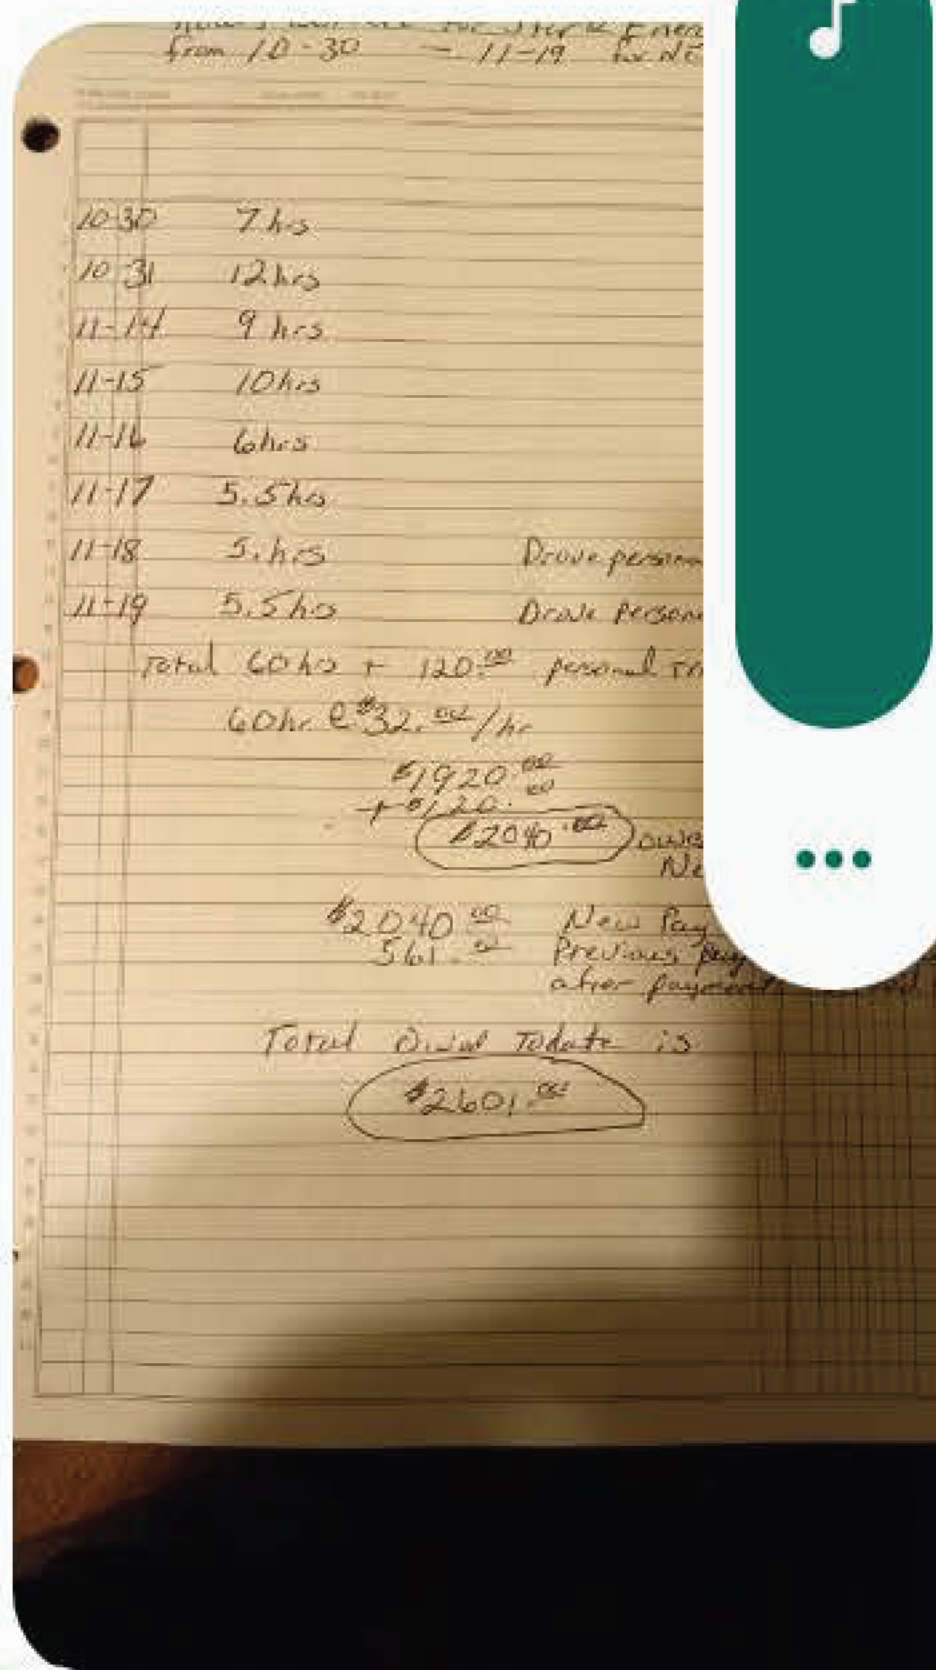 from 10-30 — 11-19 for NE
10-30 7 hrs
10 31 12 hrs
11-14 9 hrs
11-15 10 hrs
11-16 6 hrs
11-17 5.5 hrs
11-18 5. hrs Drove persona
11-19 5.5 hrs Drove Persona
Total 60 hrs + 120.00 personal Tr
60 hr. @ $32.00/hr
$1920.00
+ $120.00
$2040.00 owe
Ne
$2040.00 New Pay
561.00 Previous pay
after payment
Total Owed Todate is
$2601.00